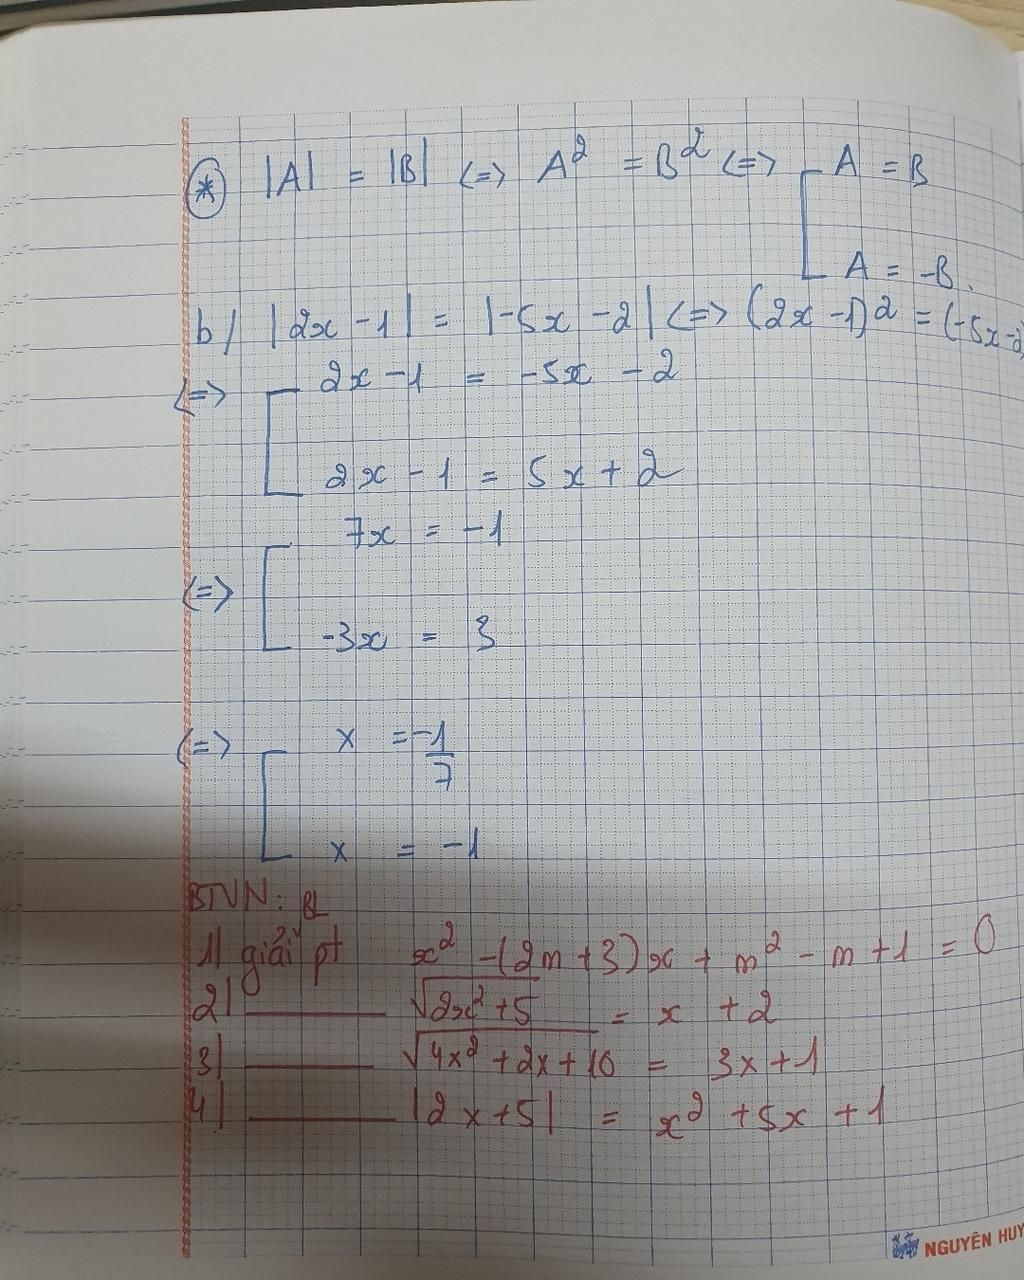 * |A| = |B| <=> A² = B² <=> [ A = B
A = -B.
b/ |2x - 1| = |-5x - 2| <=> (2x - 1)² = (-5x - 2)
<=> [ 2x - 1 = -5x - 2
2x - 1 = 5x + 2
7x = -1
<=> [
-3x = 3
<=> [ x = -1/7
x = -1
BTVN:
1) giải pt x² - (2m + 3)x + m² - m + 1 = 0
2) ______ √(2x² + 5) = x + 2
3) ______ √(4x² + 2x + 10) = 3x + 1
4) ______ |2x + 5| = x² + 5x + 1
NGUYÊN HUY